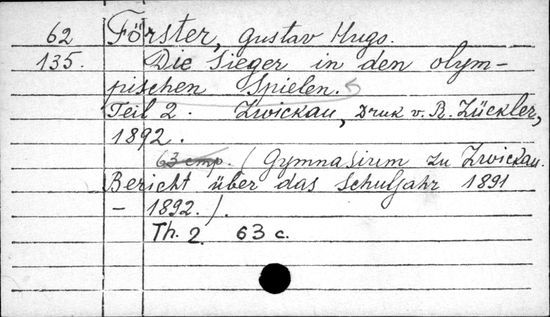 62 Förster, Gustav Hugo.
135. Die Sieger in den olym-
pischen Spielen.
Teil 2. Zwickau, Druk v. R. Zückler,
1892.
63 стр. (Gymnasium zu Zwickau.
Bericht über das Schuljahr 1891
– 1892.).
Th. 2. 63 c.